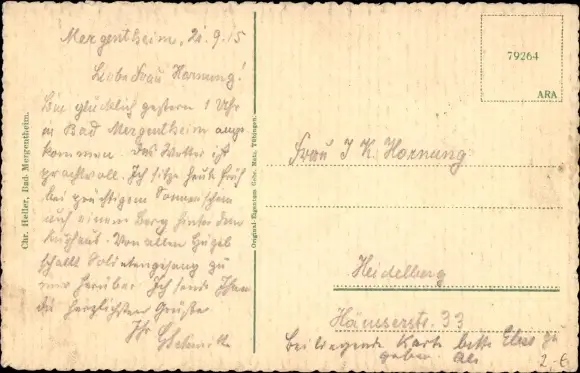 Mergentheim, 21.9.15
Liebe Frau Hornung!
Bin glücklich gestern 1 Uhr
in Bad Mergentheim ange
kommen. Das Wetter ist
prachtvoll. Ich sitze heute früh
bei prächtigem Sonnenschein
auf einem Berg hinter dem
Kurhaus. Von allen Hügel
schallt Soldatengesang zu
mir herüber. Ich sende Ihnen
die herzlichsten Grüsse
Ihr
Chr. Heller, Bad Mergentheim.
Original-Eigentum Gebr. Metz, Tübingen.
79264
ARA
Frau J K. Hornung
Heidelberg
Häusserstr. 33
beiliegende Karte bitte zu
geben
2,-€